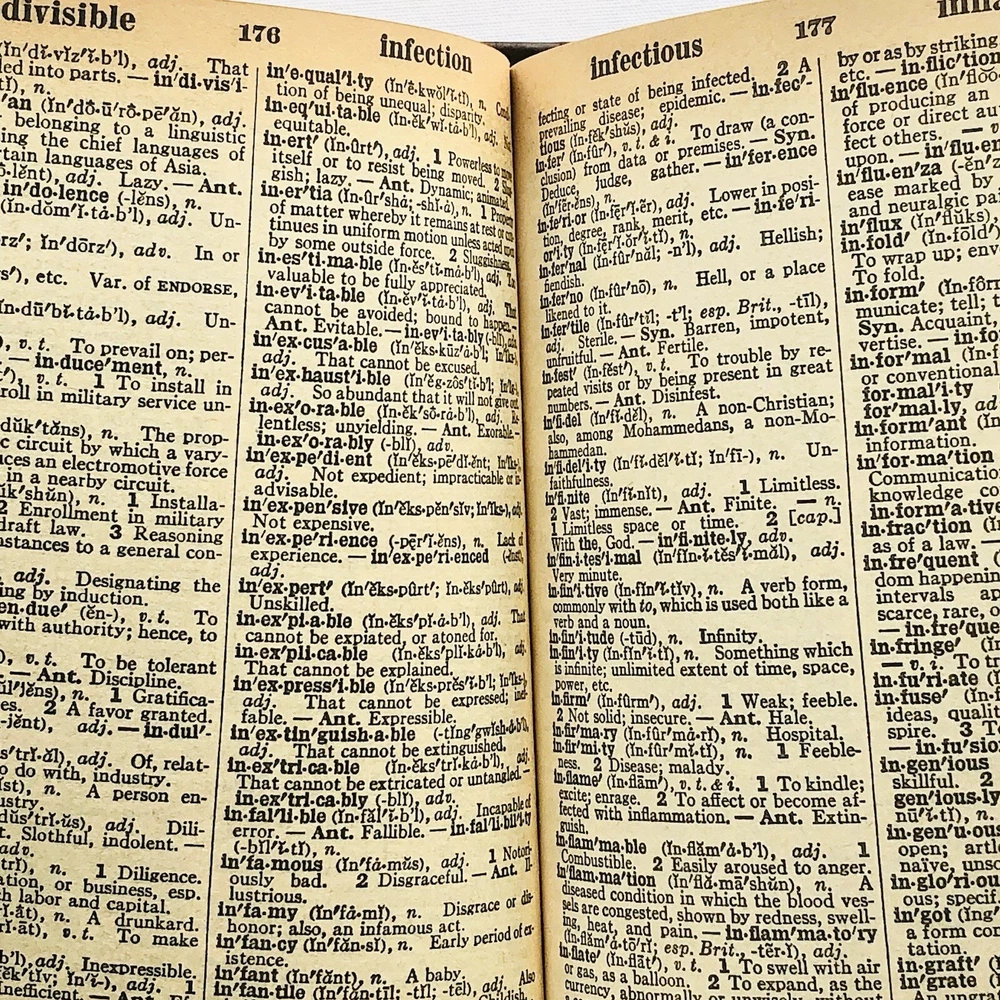 divisible
176
infection
(ĭn'dĭ·vĭz'ĭ·b'l), adj. That
led into parts. — in'di·vis'i-
n.
(ĭn'dô·ū'rô·pē'ăn), adj.
belonging to a linguistic
ing the chief languages of
tain languages of Asia.
adj. Lazy. — Ant.
in'do·lence (-lĕns), n.
(ĭn·dŏm'ĭ·tȧ·b'l), adj. Un-
ĭn'dôrz'), adv. In or
etc. Var. of ENDORSE,
(ĭn·dū'bĭ·tȧ·b'l), adj. Un-
v. t. To prevail on; per-
— in·duce'ment, n.
v. t. 1 To install in
roll in military service un-
n. The prop-
c circuit by which a vary-
ces an electromotive force
in a nearby circuit.
n. 1 Installa-
2 Enrollment in military
draft law. 3 Reasoning
nstances to a general con-
adj. Designating the
ing by induction.
en·due' (ĕn-), v. t. To
with authority; hence, to
v. t. To be tolerant
— Ant. Discipline.
n. 1 Gratifica-
2 A favor granted.
adj. — in·dul'-
adj. Of, relat-
o do with, industry.
n. A person en-
ustry.
adj. Dili-
t. Slothful, indolent. —
adv.
n. 1 Diligence.
ation, or business, esp.
h labor and capital.
n. A drunkard.
v. t. To make
adj. Inexpressible.
adj.
Inefficient. — Ant.
in'e·qual'i·ty (ĭn'ē·kwŏl'ĭ·tĭ), n.
tion of being unequal; disparity.
in·eq'ui·ta·ble (ĭn·ĕk'wĭ·tȧ·b'l), adj.
equitable.
in·ert' (ĭn·ûrt'), adj. 1 Powerless to
itself or to resist being moved. 2
gish; lazy. — Ant. Dynamic; animated.
in·er'tia (ĭn·ûr'shȧ; -shĭ·ȧ), n. 1
of matter whereby it remains at rest or
tinues in uniform motion unless acted upon
by some outside force. 2 Sluggishness.
in·es'ti·ma·ble (ĭn·ĕs'tĭ·mȧ·b'l), adj.
valuable to be fully appreciated.
in·ev'i·ta·ble (ĭn·ĕv'ĭ·tȧ·b'l), adj. That
cannot be avoided; bound to happen. —
Ant. Evitable. — in·ev'i·ta·bly (-blĭ), adv.
in'ex·cus'a·ble (ĭn'ĕks·kūz'ȧ·b'l;
adj. That cannot be excused.
in'ex·haust'i·ble (ĭn'ĕg·zôs'tĭ·b'l;
adj. So abundant that it will not give out.
in·ex'o·ra·ble (ĭn·ĕk'sô·rȧ·b'l), adj.
lentless; unyielding. — Ant. Exorable. —
in·ex'o·ra·bly (-blĭ), adv.
in'ex·pe'di·ent (ĭn'ĕks·pē'dĭ·ĕnt;
adj. Not expedient; impracticable or
advisable.
in'ex·pen'sive (ĭn'ĕks·pĕn'sĭv; adj.
Not expensive.
in'ex·pe'ri·ence (-pēr'ĭ·ĕns), n. Lack of
experience. — in'ex·pe'ri·enced
adj.
in'ex·pert' (ĭn'ĕks·pûrt'; adj.
Unskilled.
in·ex'pi·a·ble (ĭn·ĕks'pĭ·ȧ·b'l), adj. That
cannot be expiated, or atoned for.
in·ex'pli·ca·ble (ĭn·ĕks'plĭ·kȧ·b'l), adj.
That cannot be explained.
in'ex·press'i·ble (ĭn'ĕks·prĕs'ĭ·b'l;
adj. That cannot be expressed; inef-
fable. — Ant. Expressible.
in'ex·tin'guish·a·ble (-tĭng'gwĭsh·ȧ·b'l),
adj. That cannot be extinguished.
in·ex'tri·ca·ble (ĭn·ĕks'trĭ·kȧ·b'l), adj.
That cannot be extricated or untangled. —
in·ex'tri·ca·bly (-blĭ), adv.
in·fal'li·ble (ĭn·făl'ĭ·b'l), adj. Incapable of
error. — Ant. Fallible. — in·fal'li·bil'i·ty
(-bĭl'ĭ·tĭ), n.
in'fa·mous (ĭn'fȧ·mŭs), adj. 1 Notori-
ously bad. 2 Disgraceful. — Ant. Il-
lustrious.
in'fa·my (ĭn'fȧ·mĭ), n. Disgrace or dis-
honor; also, an infamous act.
in'fan·cy (ĭn'făn·sĭ), n. Early period of ex-
istence.
in'fant (ĭn'fănt), n. A baby.
in'fan·tile (ĭn'făn·tīl; -tĭl; -tēl), adj. Also
Childish.
infectious
177
fecting or state of being infected. 2 A
prevailing disease; epidemic. — in·fec'-
tious (ĭn·fĕk'shŭs), adj.
in·fer' (ĭn·fûr'), v. t. & i. To draw (a con-
clusion) from data or premises. — Syn.
Deduce, judge, gather. — in'fer·ence
(ĭn'fẽr·ĕns), n.
in·fe'ri·or (ĭn·fēr'ĭ·ẽr), adj. Lower in posi-
tion, degree, rank, merit, etc. — in·fe'ri-
or'i·ty (ĭn·fēr'ĭ·ŏr'ĭ·tĭ), n.
in·fer'nal (ĭn·fûr'năl; -n'l), adj. Hellish;
fiendish.
in·fer'no (ĭn·fûr'nō), n. Hell, or a place
likened to it.
in·fer'tile (ĭn·fûr'tĭl; -t'l; esp. Brit., -tīl),
adj. Sterile. — Syn. Barren, impotent,
unfruitful. — Ant. Fertile.
in·fest' (ĭn·fĕst'), v. t. To trouble by re-
peated visits or by being present in great
numbers. — Ant. Disinfest.
in'fi·del (ĭn'fĭ·dĕl), n. A non-Christian;
also, among Mohammedans, a non-Mo-
hammedan.
in'fi·del'i·ty (ĭn'fĭ·dĕl'ĭ·tĭ; ĭn'fī-), n. Un-
faithfulness.
in'fi·nite (ĭn'fĭ·nĭt), adj. 1 Limitless.
2 Vast; immense. — Ant. Finite. — n.
1 Limitless space or time. 2 [cap.]
With the, God. — in'fi·nite·ly, adv.
in'fin·i·tes'i·mal (ĭn'fĭn·ĭ·tĕs'ĭ·măl), adj.
Very minute.
in·fin'i·tive (ĭn·fĭn'ĭ·tĭv), n. A verb form,
commonly with to, which is used both like a
verb and a noun.
in·fin'i·tude (-tūd), n. Infinity.
in·fin'i·ty (ĭn·fĭn'ĭ·tĭ), n. Something which
is infinite; unlimited extent of time, space,
power, etc.
in·firm' (ĭn·fûrm'), adj. 1 Weak; feeble.
2 Not solid; insecure. — Ant. Hale.
in·fir'ma·ry (ĭn·fûr'mȧ·rĭ), n. Hospital.
in·fir'mi·ty (ĭn·fûr'mĭ·tĭ), n. 1 Feeble-
ness. 2 Disease; malady.
in·flame' (ĭn·flām'), v. t. & i. 1 To kindle;
excite; enrage. 2 To affect or become af-
fected with inflammation. — Ant. Extin-
guish.
in·flam'ma·ble (ĭn·flăm'ȧ·b'l), adj. 1
Combustible. 2 Easily aroused to anger.
in'flam·ma'tion (ĭn'flȧ·mā'shŭn), n. A
diseased condition in which the blood ves-
sels are congested, shown by redness, swell-
ing, heat, and pain. — in·flam'ma·to'ry
(ĭn·flăm'ȧ·tō'rĭ; esp. Brit., -tẽr·ĭ), adj.
in·flate' (ĭn·flāt'), v. t. 1 To swell with air
or gas, as a balloon. 2 To expand, as the
currency, abnormally or unwisely, without
by or as by striking
etc. — in·flic'tion
in'flu·ence (ĭn'flŏŏ
of producing an
force or direct au
fect others. — v
upon. — in'flu·en
in'flu·en'za (-ĕn'z
ease marked by
and neuralgic pa
in'flux (ĭn'flŭks),
in·fold' (ĭn·fōld')
To wrap up; env
To fold.
in·form' (ĭn·fôrm
municate; tell; t
Syn. Acquaint,
vertise. — in·fo
in·for'mal (ĭn·f
or conventional
for·mal'i·ty
for'mal·ly, ad
in·form'ant (ĭn
information.
in'for·ma'tion
Communication
knowledge co
in·form'a·tive
in·frac'tion (ĭn
as of a law. —
in·fre'quent (
dom happenin
intervals ap
scarce, rare, o
— in·fre'que
in·fringe' (ĭn
— v. i. To tr
in·fu'ri·ate (ĭn
in·fuse' (ĭn
ideas, qualit
spire. 3 To
— in·fu'sio
in·gen'ious
skillful. 2
gen'ious·ly
nū'ĭ·tĭ), n.
in·gen'u·ou
open; artle
naïve, unso
in·glo'ri·ou
ous; specif.
in'got (ĭng'
a form con
tation.
in·graft' (ĭ
in'grate (ĭn